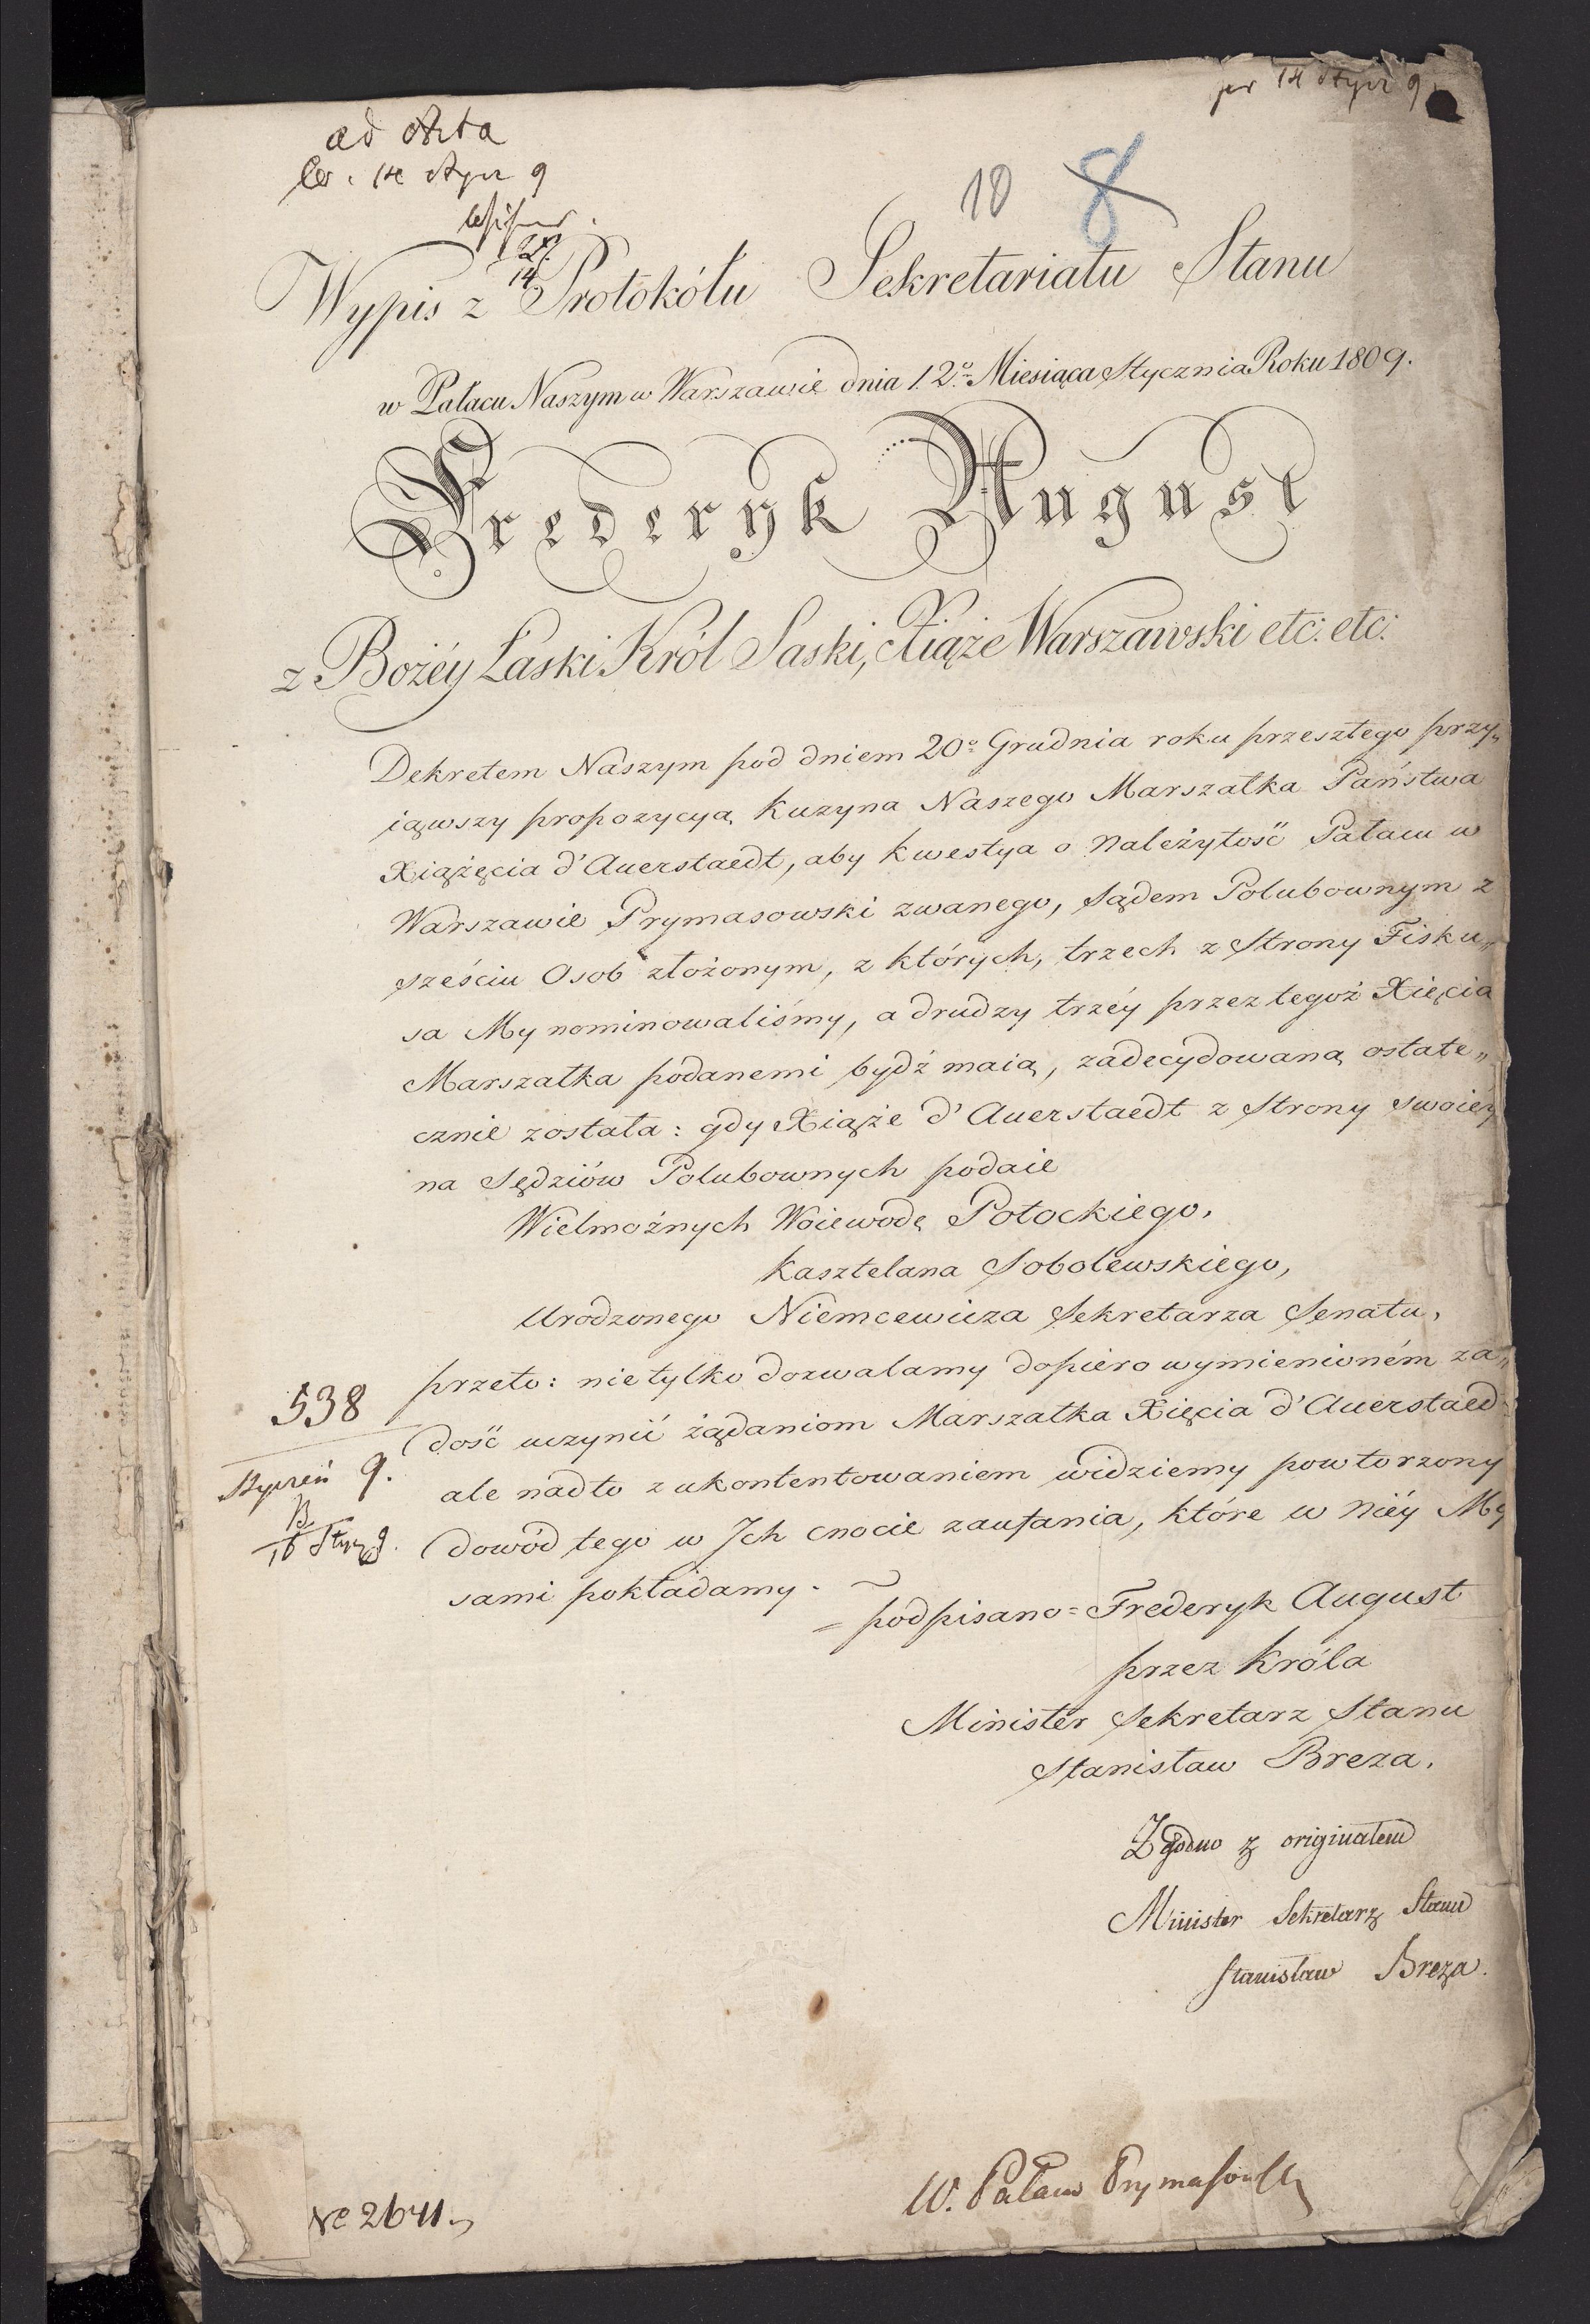 pr 14 Stycz 9
ad Akta
14 Stycz 9
10 8
27
14
Wypis z Protokółu Sekretariatu Stanu
w Pałacu Naszym w Warszawie dnia 12º Miesiąca Stycznia Roku 1809.
Frederyk August
z Bożéy Łaski Król Saski, Xiąże Warszawski etc: etc:
Dekretem Naszym pod dniem 20º Grudnia roku przeszłego przy„
iąwszy propozycyą Kuzyna Naszego Marszałka Państwa
Xiążęcia d'Auerstaedt, aby kwestya o należytość Pałacu w
Warszawie Prymasowski zwanego, Sądem Polubownym z
sześciu Osob złożonym, z których, trzech z Strony Fisku„
sa My nominowaliśmy, a drudzy trzéy przez tegoż Xięcia
Marszałka podanemi bydź maią, zadecydowaną ostate„
cznie została: gdy Xiąże d'Auerstaedt z Strony swoiéy
na Sędziów Polubownych podaie
Wielmożnych Woiewodę Potockiego,
Kasztelana Sobolewskiego,
Urodzonego Niemcewicza Sekretarza Senatu,
przeto: nietylko dozwalamy dopiero wymienioném za„
dość uczynić żądaniom Marszałka Xięcia d'Auerstaed
ale nadto z ukontentowaniem widziemy powtorzony
dowód tego w Ich cnocie zaufania, które w niéy My
sami pokładamy.
538
Styczeń 9.
B
16 Stycz 9.
= podpisano = Frederyk August
przez Króla
Minister Sekretarz Stanu
Stanisław Breza.
Zgodno z originałem
Minister Sekretarz Stanu
Stanisław Breza.
W. Pałacu Prymasowsk
Nº 2641.